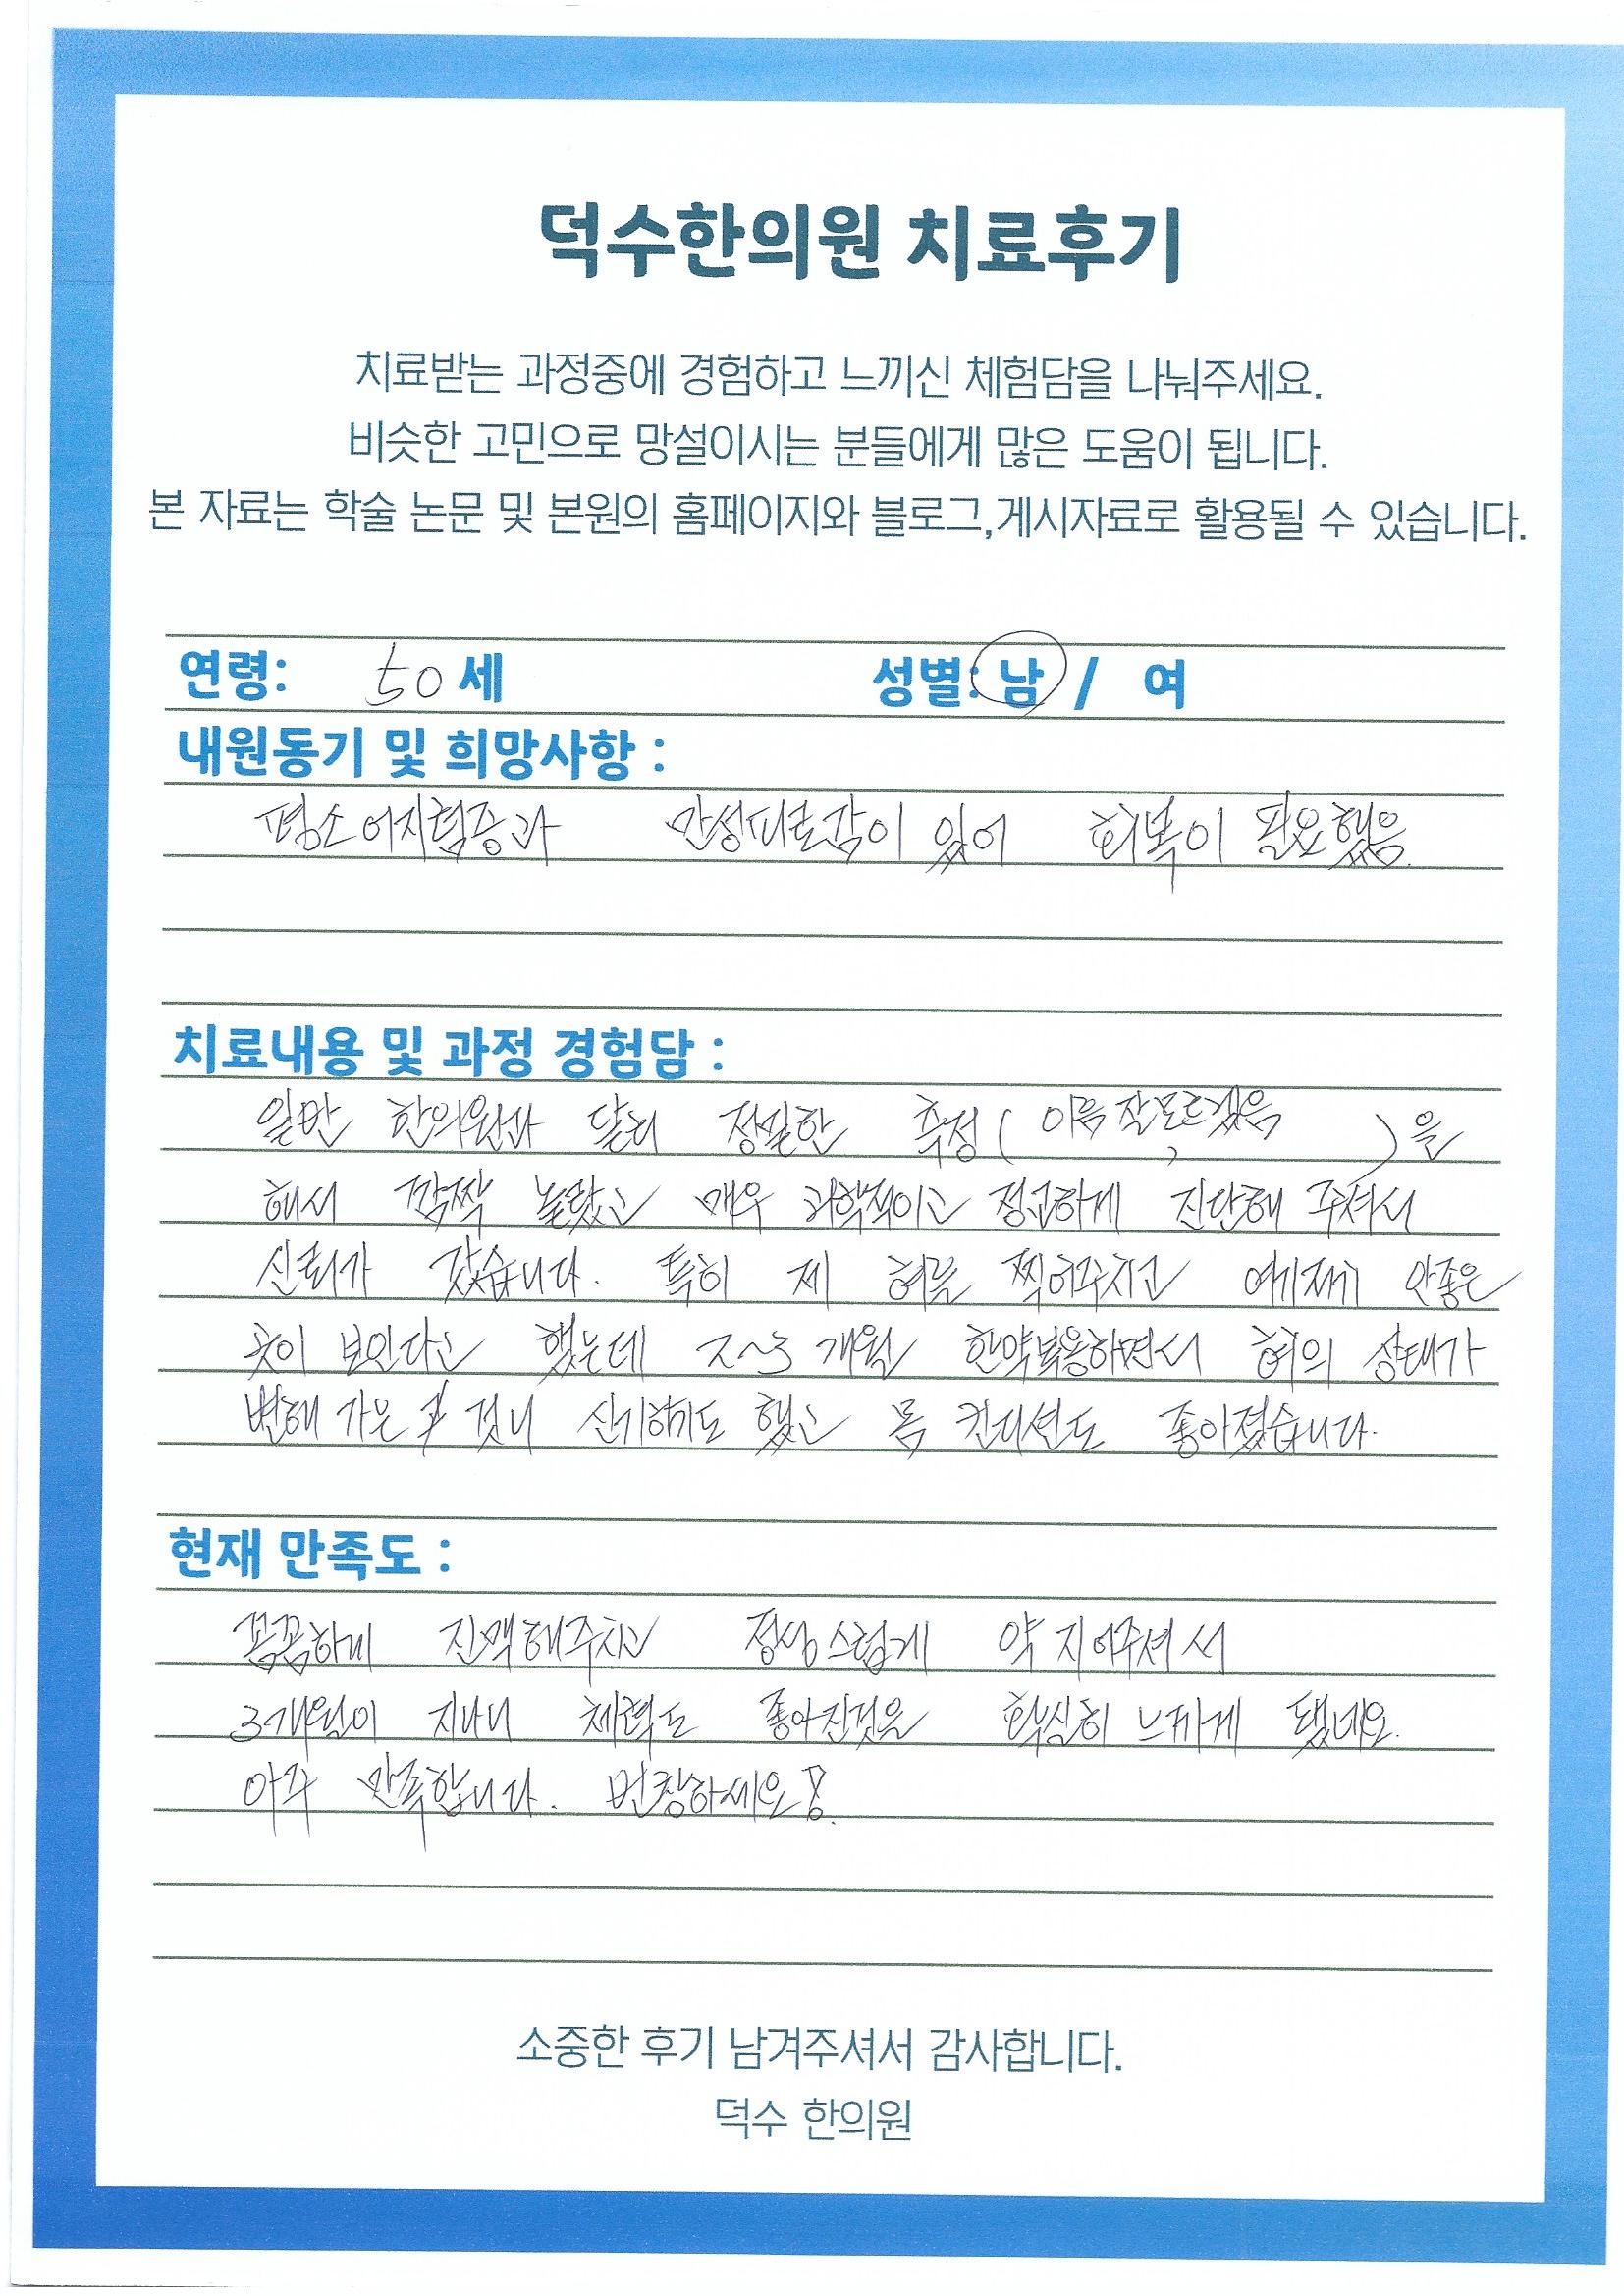 덕수한의원 치료후기
치료받는 과정중에 경험하고 느끼신 체험담을 나눠주세요.
비슷한 고민으로 망설이시는 분들에게 많은 도움이 됩니다.
본 자료는 학술 논문 및 본원의 홈페이지와 블로그,게시자료로 활용될 수 있습니다.
연령: 50세 성별: 남 / 여
내원동기 및 희망사항 :
평소 어지럼증과 만성피로감이 있어 회복이 필요했음.
치료내용 및 과정 경험담 :
일반 한의원과 달리 정밀한 측정( 이름 잘 모르겠음 )을
해서 깜짝 놀랐고 매우 과학적이고 정교하게 진단해 주셔서
신뢰가 갔습니다. 특히 제 혀를 찍어주시고 여기저기 안좋은
곳이 보인다고 했는데 2~3개월 한약복용하면서 혀의 상태가
변해 가는 것이 신기하기도 했고 몸 컨디션도 좋아졌습니다.
현재 만족도 :
꼼꼼하게 진맥해주시고 정성스럽게 약 지어주셔서
3개월이 지나니 체력도 좋아진것을 확실히 느끼게 됐네요.
아주 만족합니다. 번창하세요!
소중한 후기 남겨주셔서 감사합니다.
덕수 한의원